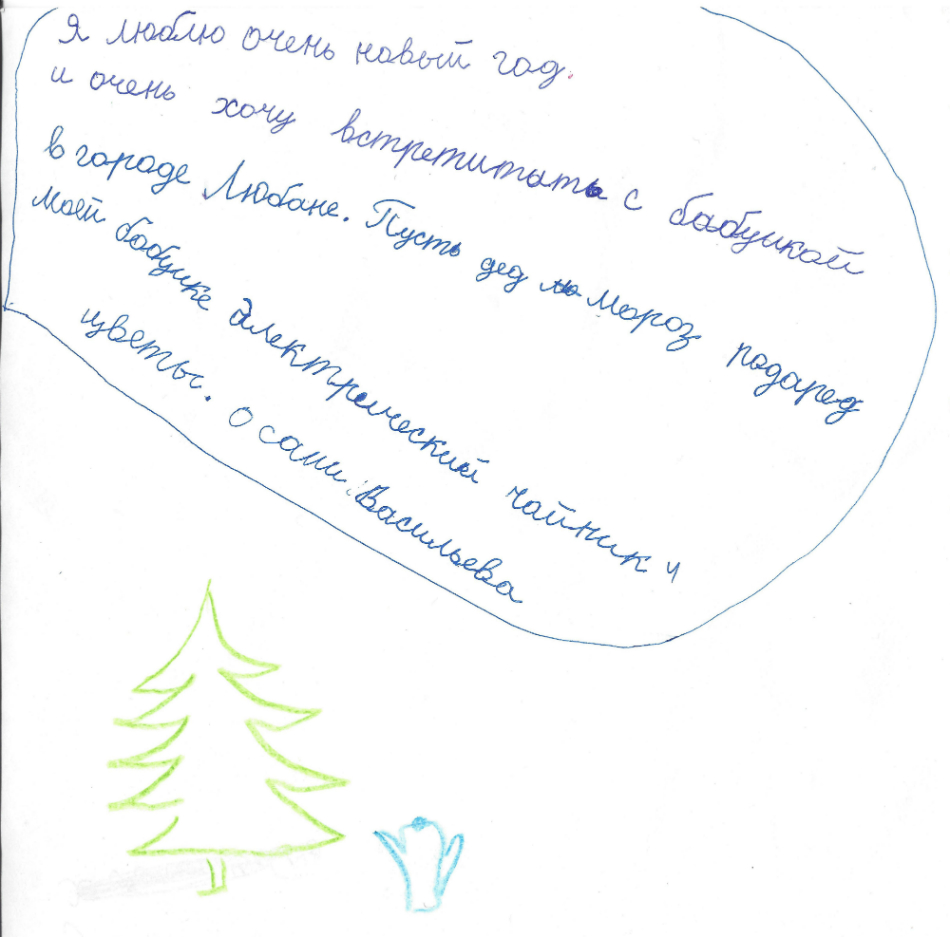 Я люблю очень новый год.
и очень хочу встретитать с бабушкой
в городе Любане. Пусть дед Мороз подаред
моей бабушке электрический чайник и
цветы. О сани Васильева